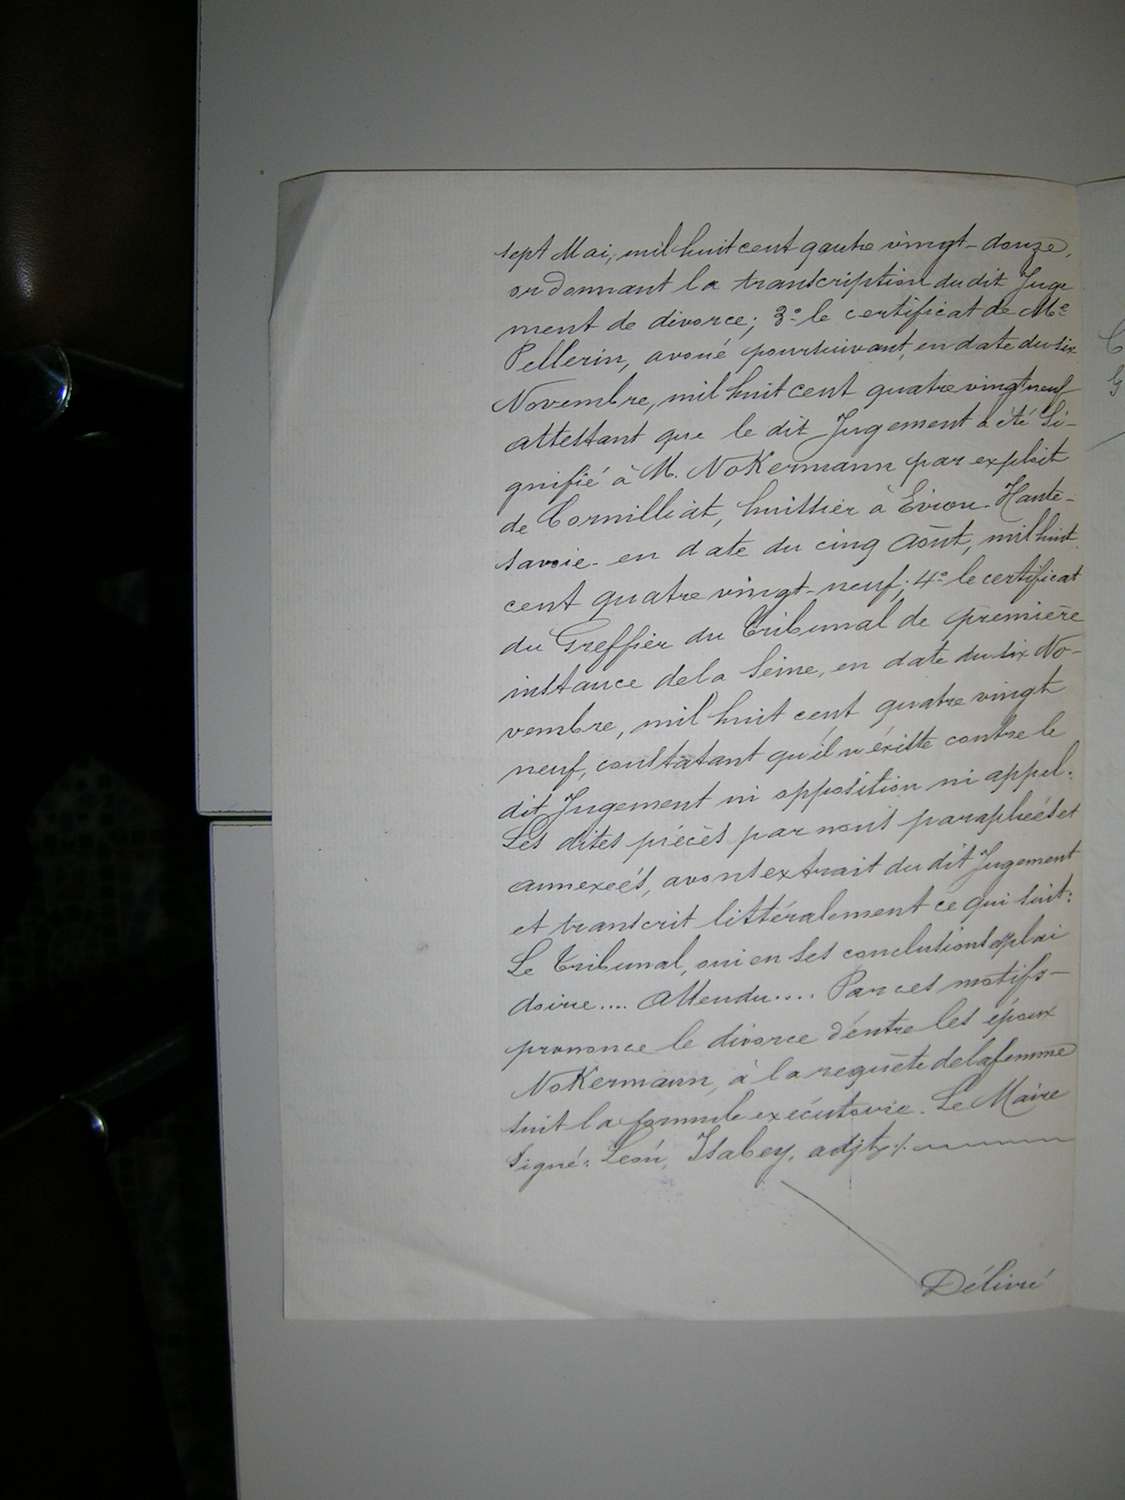 sept Mai, mil huit cent qautre vingt-douze,
ordonnant la transcription du dit Juge
ment de divorce; 3.° le certificat de Me
Pellerin, avoué poursuivant, en date du six
Novembre, mil huit cent quatre vingt neuf
attestant que le dit Jugement a été Si-
gnifié à M. NoKermann par exploit
de Cornilliat, huissier à Evian-Haute-
savoie- en date du cinq Août, mil huit
cent quatre vingt-neuf; 4.° le certificat
du Greffier du Tribunal de première
instance de la Seine, en date du six No-
vembre, mil huit cent quatre vingt
neuf, constatant qu'il n'existe contre le
dit Jugement ni opposition ni appel.
Les dites pièces par nous paraphées et
annexées, avons extrait du dit Jugement
et transcrit littéralement ce qui suit:
Le Tribunal, oui en ses conclusions et plai
doirie.... Attendu.... Par ces motifs-
prononce le divorce d'entre les époux
NoKermann, à la requête de la femme
suit la formule exécutoire. Le Maire
Signé: Léon, Isabey, adjt
Délivré